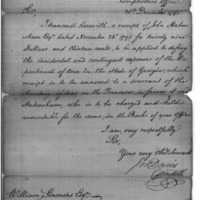 Comptrollers Office
26th December 1795
Sir,
I transmit herewith, a receipt of John Haber-
sham Esqr dated November 28th 1795 for twenty nine
Dollars and thirteen cents, to be applied to defray
the incidental and contingent expences of the De-
partment of war in the State of Georgia, which
receipt is to be considered as a warrant of the
on the Treasurer in favor of
Habersham, who is to be charged and held
accountable for the same, in the Books of your Office
I am, very respectfully,
Sir,
Your very obdt Servant
Jno Davis
William Simmons Esqr